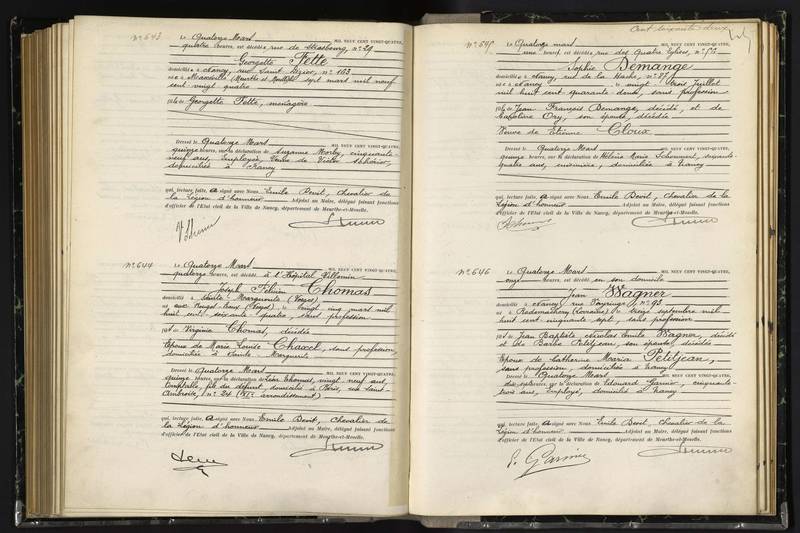 N° 643
Le Quatorze Mars MIL NEUF CENT VINGT-QUATRE,
quatre heures, est décédée rue de Strasbourg, n° 29
Georgette Fette
domiciliée à Nancy, rue Saint n° 103
née à Maxéville (Meurthe et Moselle) sept mars mil neuf
cent vingt quatre
fille de Georgette Fette, ménagère
Dressé le Quatorze Mars MIL NEUF CENT VINGT-QUATRE,
quinze heures, sur la déclaration de Suzanne cinquante-
neuf ans, Employée, Veuve de Victor
domiciliée à Nancy
qui, lecture faite, a signé avec Nous Emile Chevalier de
la Légion d'honneur Adjoint au Maire, délégué faisant fonctions
d'officier de l'Etat civil de la Ville de Nancy, département de Meurthe-et-Moselle.
N° 644
Le Quatorze Mars MIL NEUF CENT VINGT-QUATRE,
quatorze heures, est décédé à l'Hôpital Villemin
Joseph Thomas
domicilié à Sainte-Marguerite (Vosges)
né aux Rouges-Eaux (Vosges) le vingt cinq mars mil
huit cent soixante quatre, sans profession
fils de Virginie Thomas, décédée
Epoux de Marie Louise sans profession,
domiciliée à Sainte-Marguerite
Dressé le Quatorze Mars MIL NEUF CENT VINGT-QUATRE,
quinze heures, sur la déclaration de Léon Thomas, vingt neuf ans,
fils du défunt, domicilié à Paris, rue Saint
Ambroise, n° 24 (XIe arrondissement)
qui, lecture faite, a signé avec Nous Emile Chevalier de
la Légion d'honneur Adjoint au Maire, délégué faisant fonctions
d'officier de l'Etat civil de la Ville de Nancy, département de Meurthe-et-Moselle.
Cent soixante deux
N° 645
Le Quatorze mars MIL NEUF CENT VINGT-QUATRE,
une heure, est décédée rue des Quatre Eglises, n°
Sophie Demange
domiciliée à Nancy, rue de la Hache, n° 37
née à Nancy le vingt trois Juillet
mil huit cent quarante deux, sans profession
fille de Jean François Demange, décédé, et de
Ory, son épouse, décédée
Veuve de Etienne Cloux
Dressé le Quatorze Mars MIL NEUF CENT VINGT-QUATRE,
quinze heures, sur la déclaration de Hélène Marie soixante
quatre ans, domiciliée à Nancy
qui, lecture faite, a signé avec Nous Emile Chevalier de la
Légion d'honneur Adjoint au Maire, délégué faisant fonctions
d'officier de l'Etat civil de la Ville de Nancy, département de Meurthe-et-Moselle.
N° 646
Le Quatorze Mars MIL NEUF CENT VINGT-QUATRE,
onze heures, est décédé en son domicile
Jean Wagner
domicilié à Nancy, rue n° 93
né à Rodemachern (Lorraine) le treize septembre mil
huit cent cinquante sept sans profession
fils de Jean Baptiste Nicolas Emile Wagner, décédé
et de Barbe Petitjean, son épouse, décédée
Epoux de Catherine Maria Petitjean,
sans profession, domiciliée à Nancy
Dressé le Quatorze Mars MIL NEUF CENT VINGT-QUATRE,
dix sept heures, sur la déclaration de Edouard Garnier, cinquante-
trois ans, Employé, domicilié à Nancy
qui, lecture faite, a signé avec Nous Emile Chevalier de la
Légion d'honneur Adjoint au Maire, délégué faisant fonctions
d'officier de l'Etat civil de la Ville de Nancy, département de Meurthe-et-Moselle.
E. Garnier